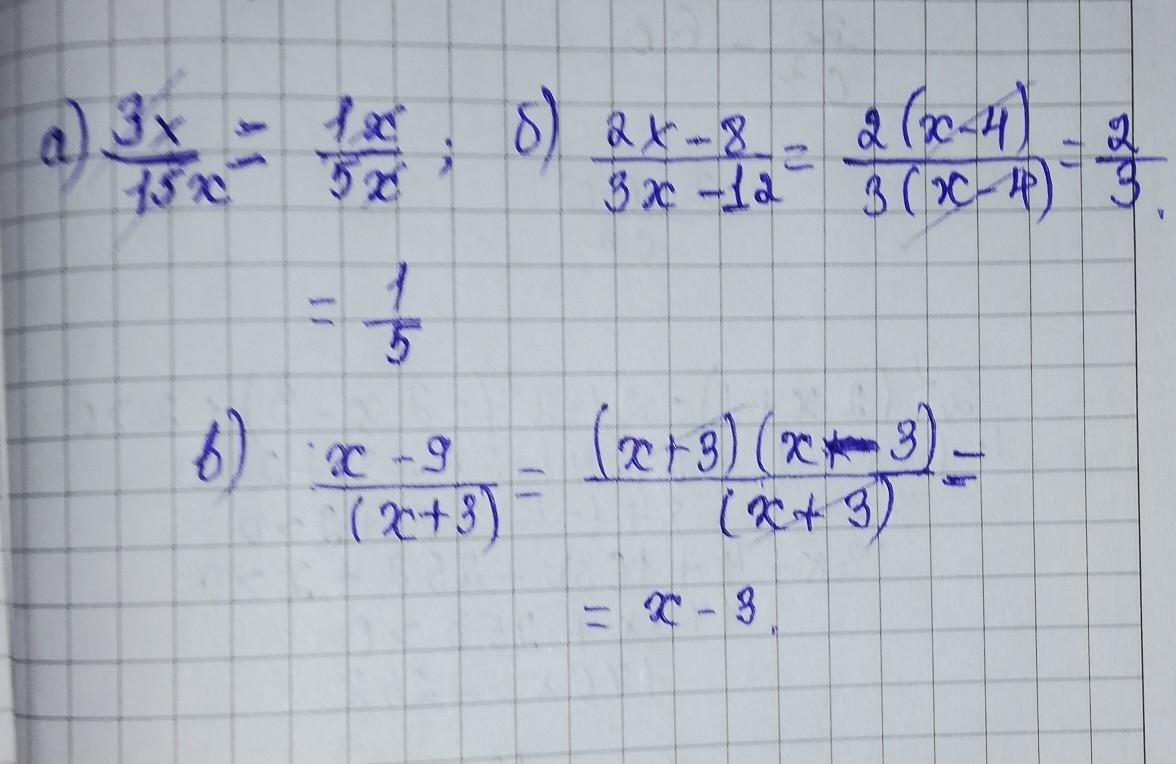 а) 3x/15x = 1x/5x ; б) 2x-8/3x-12 = 2(x-4)/3(x-4) = 2/3.
= 1/5
в) x-9/(x+3) = (x+3)(x-3)/(x+3) =
= x-3.